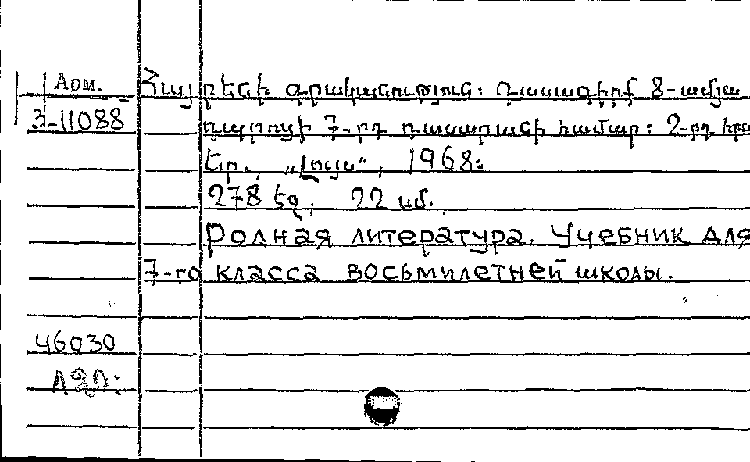 Арм.
Հայրենի գրականություն: Դասագիրք 8-ամյա
3-11088 դպրոցի 7-րդ դասարանի համար: 2-րդ հրատ
Եր., „Լույս“, 1968:
278 էջ, 22 սմ.
Родная литература. Учебник для
7-го класса восьмилетней школы.
46030